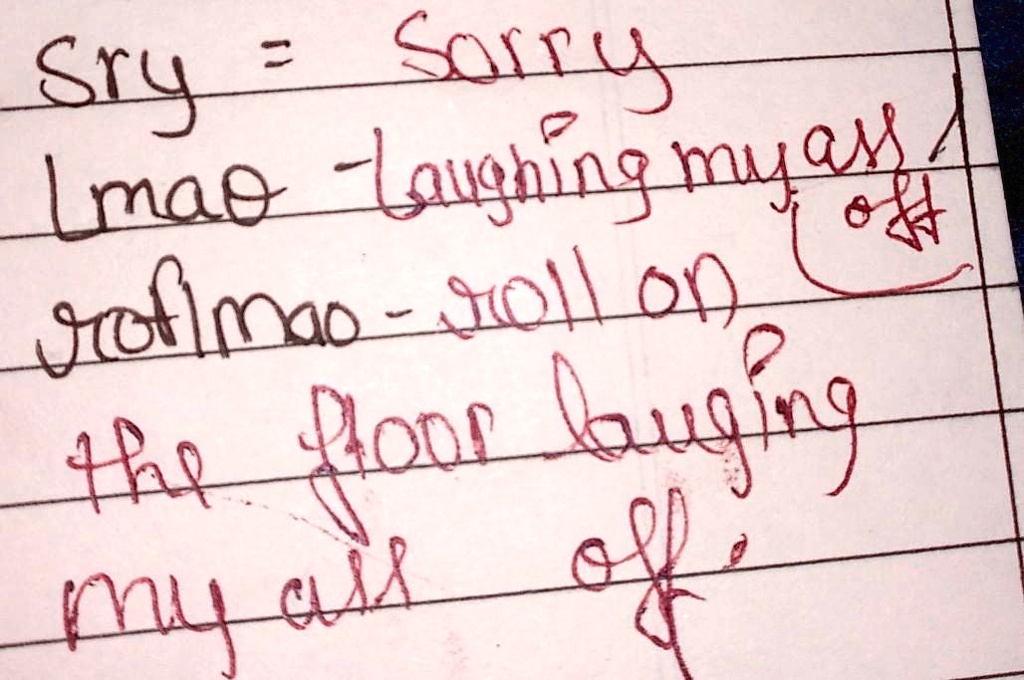 Sry = Sorry
lmao - Laughing my ass
off
roflmao - roll on
the floor lauging
my ass off.